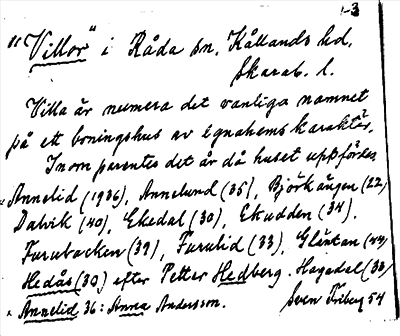 1-3
"Villor" i Råda sn, Kållands hd,
Skarab. l.
Villa är numera det vanliga namnet
på ett boningshus av egnahemskaraktär.
Inom parentes det år då huset uppfördes.
× Annelid (1936), Annelund (35), Björkängen (22)
Dalvik (40), Ekedal (30), Ekudden (34).
Furubacken (39), Furulid (33), Gläntan (44)
Hedås (30) efter Petter Hedberg. Hagadal (38)
× Annelid 36: Anna Andersson. Sven Friberg 54